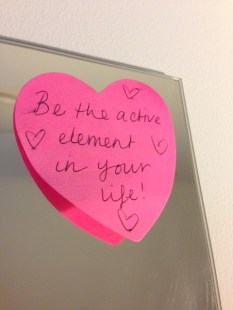 Be the active
element
in your
life!